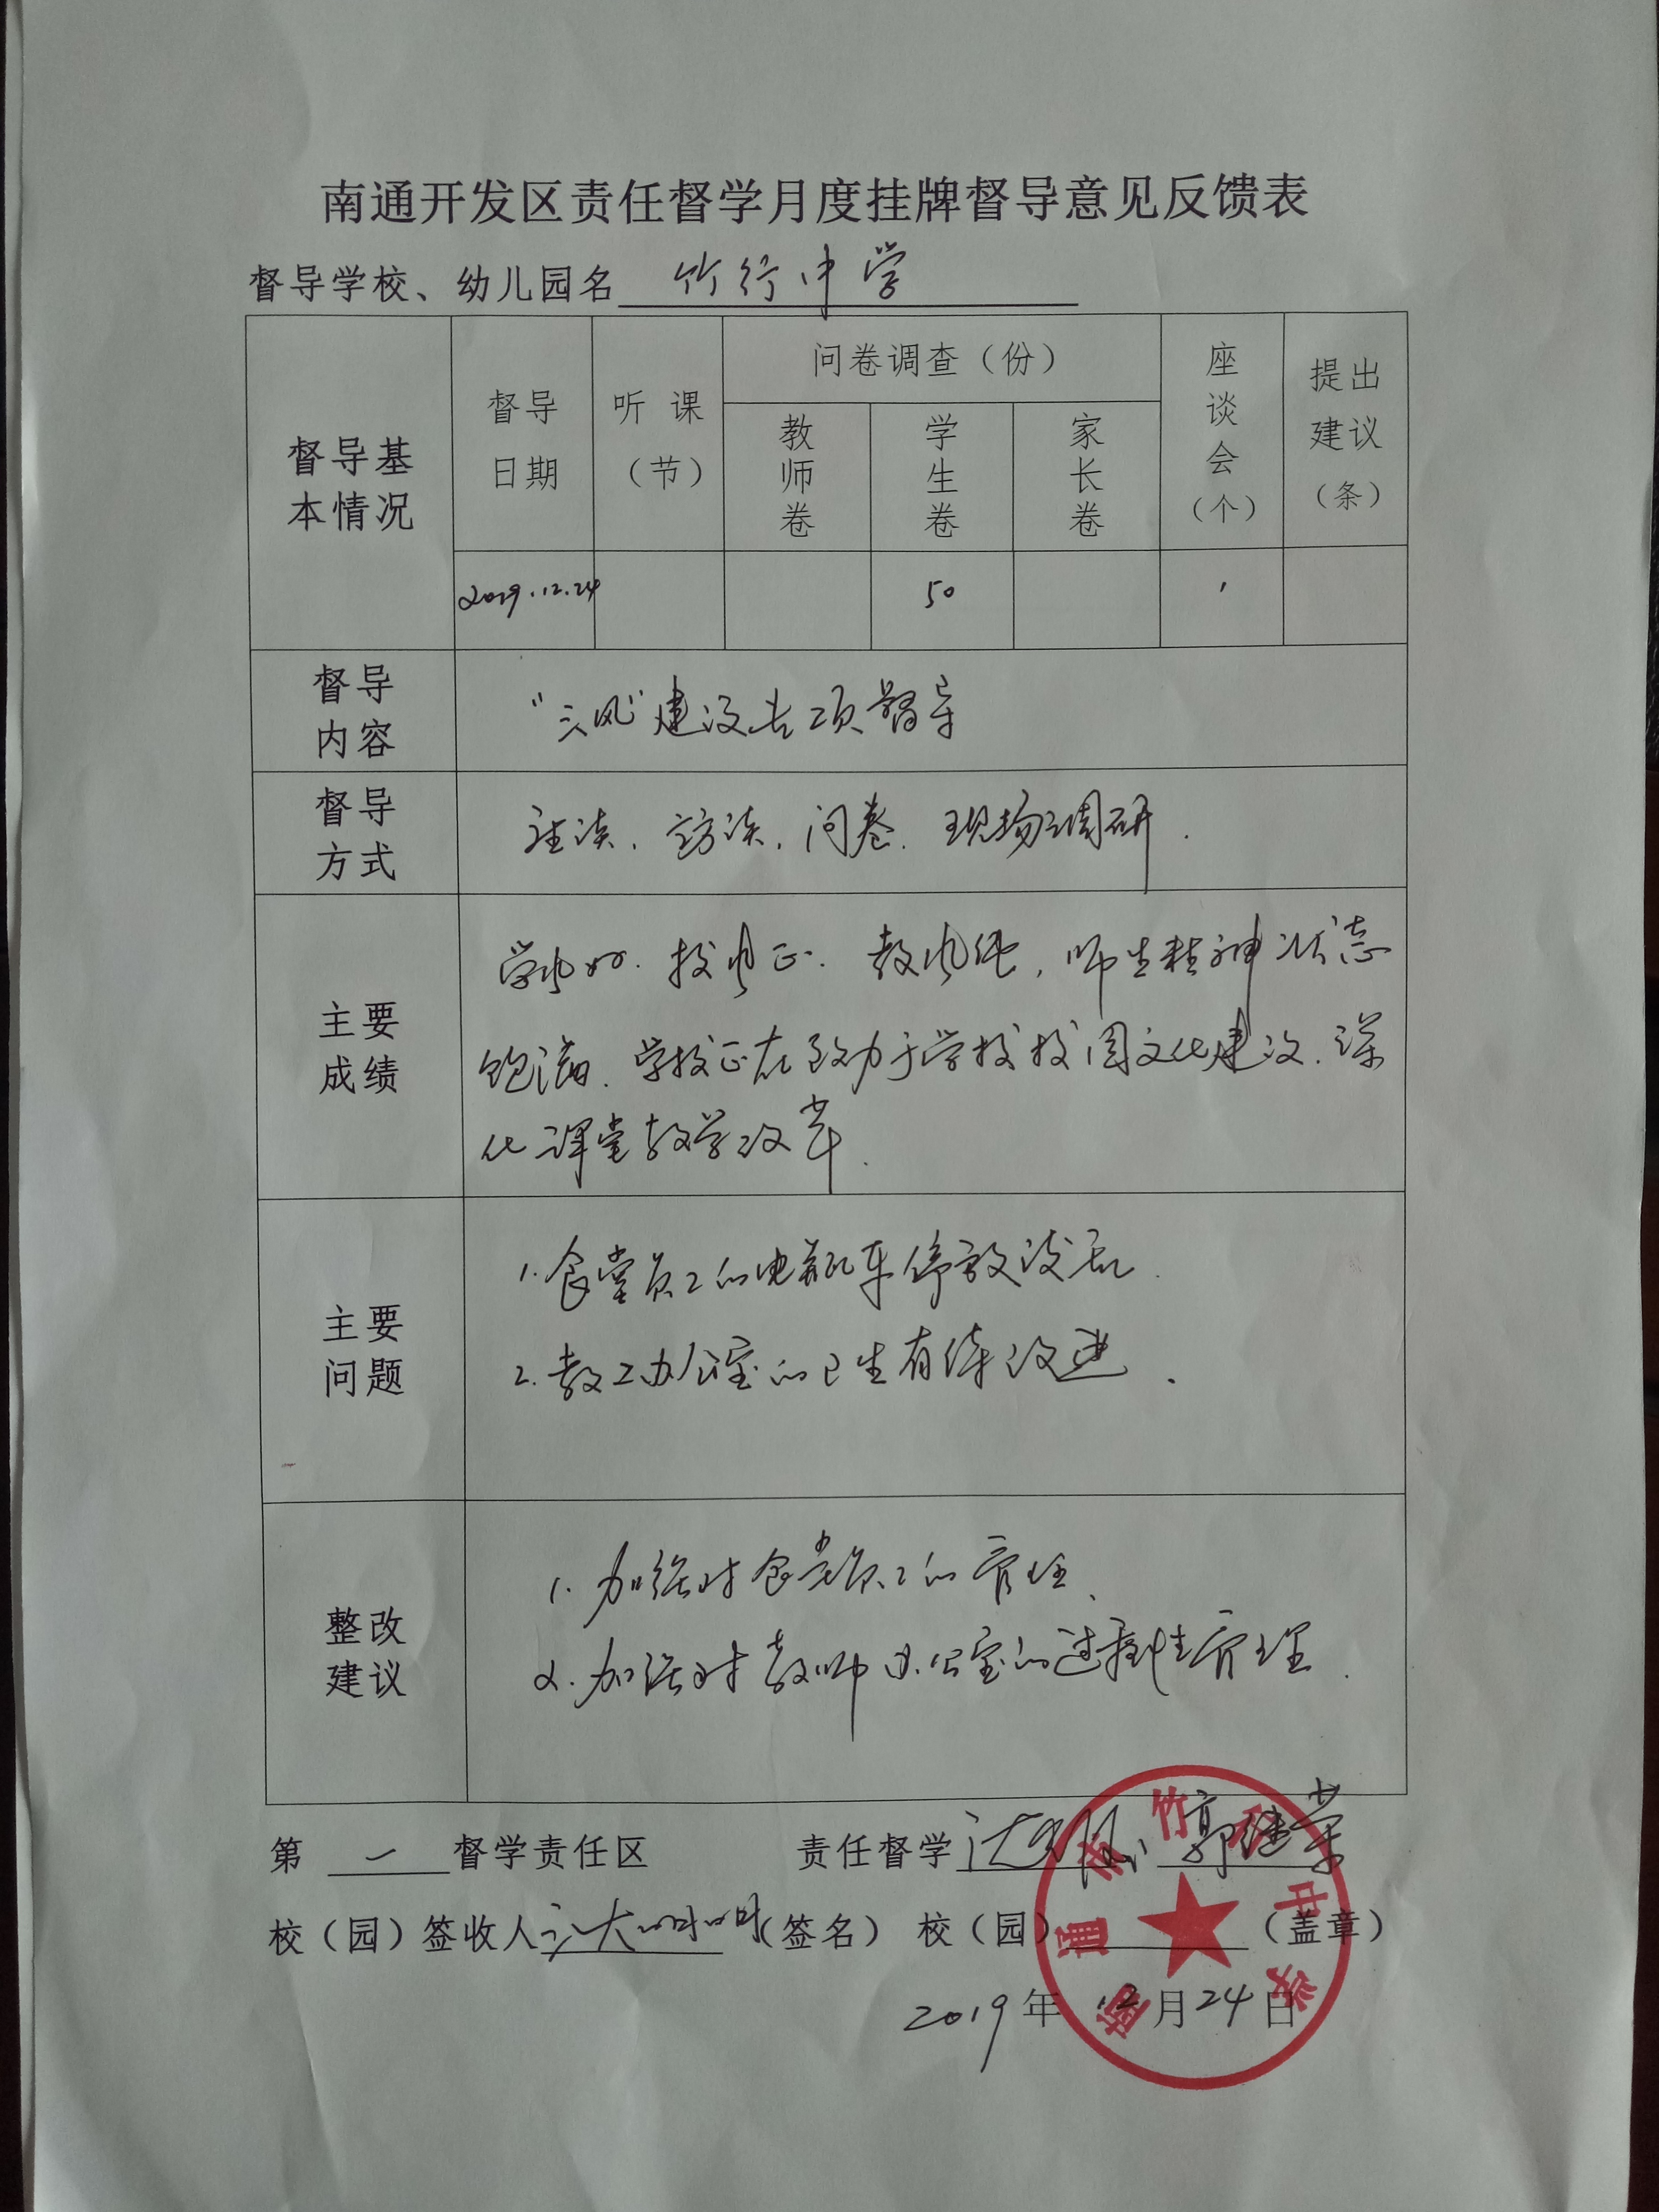 南通开发区责任督学月度挂牌督导意见反馈表
督导学校、幼儿园名 竹行中学
督导基本情况
督导日期
听课（节）
问卷调查（份）
教师卷
学生卷
家长卷
座谈会（个）
提出建议（条）
2019.12.24
50
1
督导内容
“三风”建设专项督导
督导方式
座谈、访谈、问卷、现场调研.
主要成绩
学风好、校风正、教风纯，师生精神状态
饱满、学校正在致力于学校校园文化建设、深
化课堂教学改革.
主要问题
1.食堂员工的电瓶车停放凌乱.
2.教工办公室的卫生有待改进.
整改建议
1.加强对食堂员工的管理、
2.加强对教师办公室的过程性管理.
第 一 督学责任区 责任督学 郭继荣
校（园）签收人 （签名） 校（园） （盖章）
2019年12月24日
南通市竹行中学